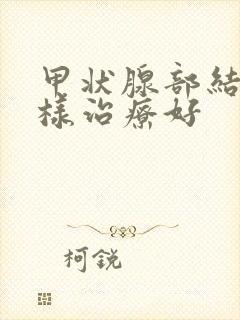 甲状腺部結
樣治療好
柯銳